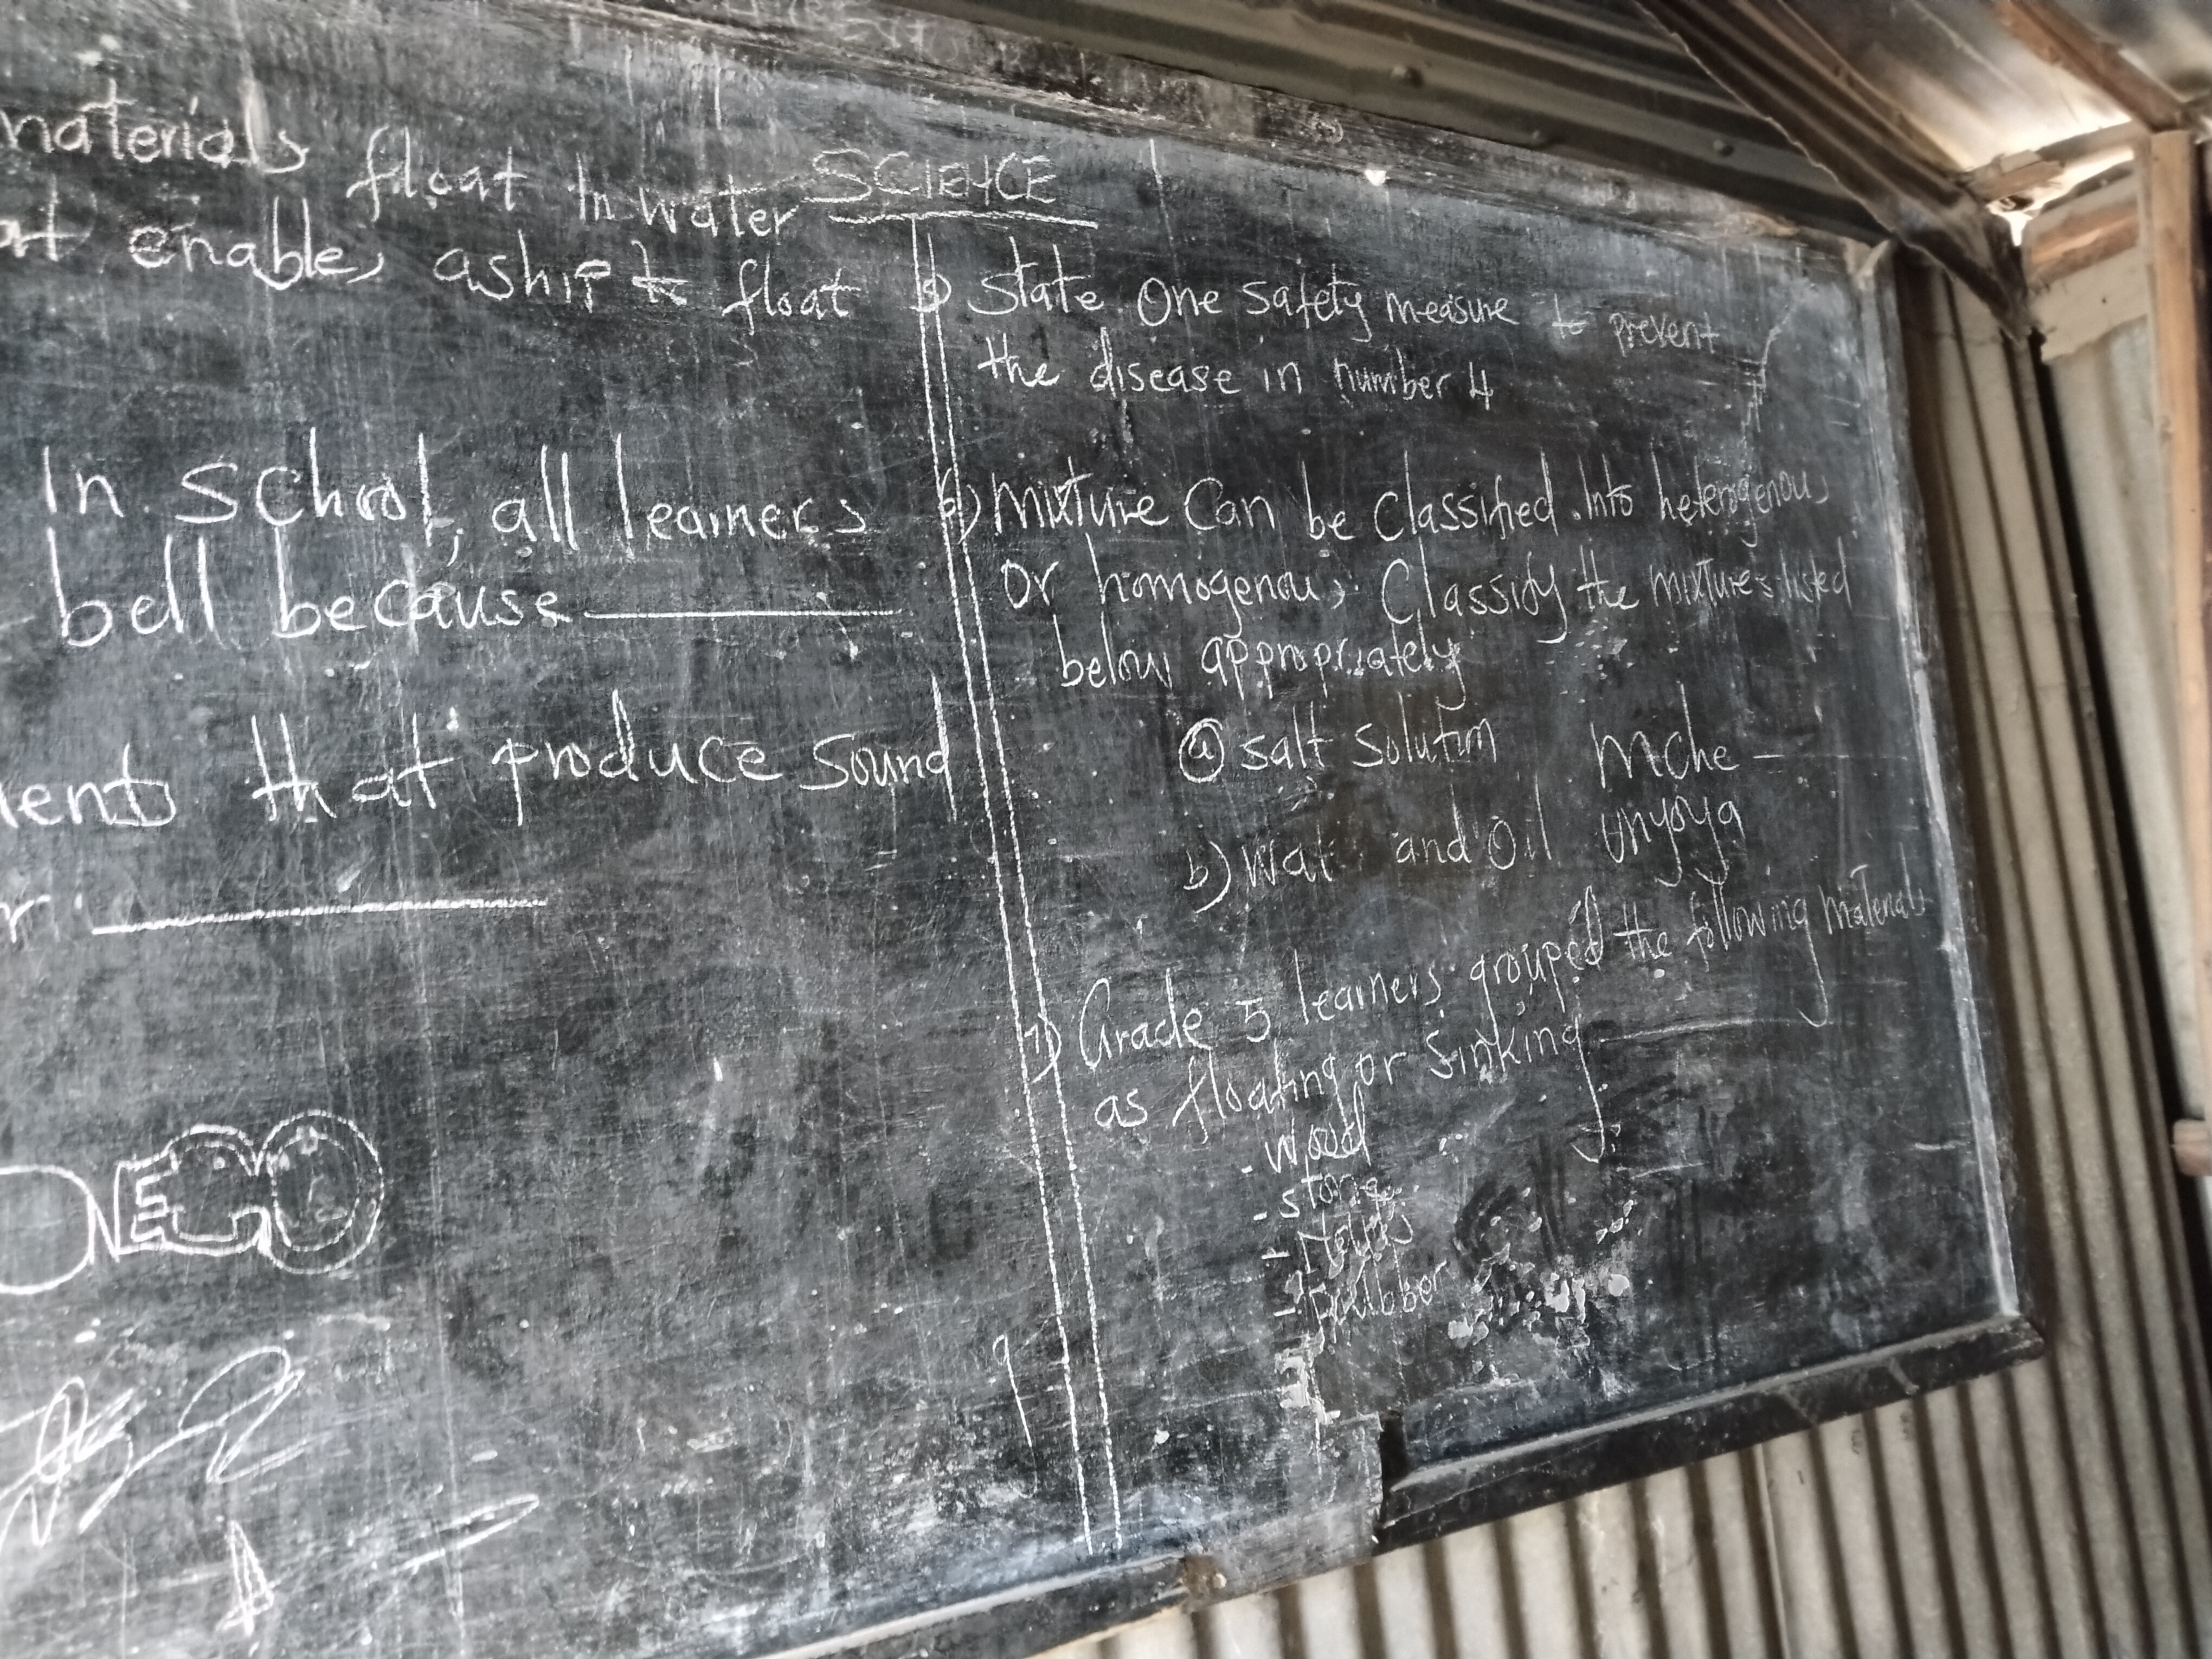 materials float in water
at enables a ship to float
In school, all learners
bell because
ents that produce sound
r:
ONEGO
SCIENCE
5) State One Safety measure to prevent
the disease in number 4
6) Mixture can be classified into heterogenous
or homogenous. Classify the mixtures listed
below appropriately
(a) salt solution
b) Wat and Oil
Mche –
unyoya
7) Grade 5 learners grouped the following materials
as floating or sinking
- Wood
- stone
- Rubber
9